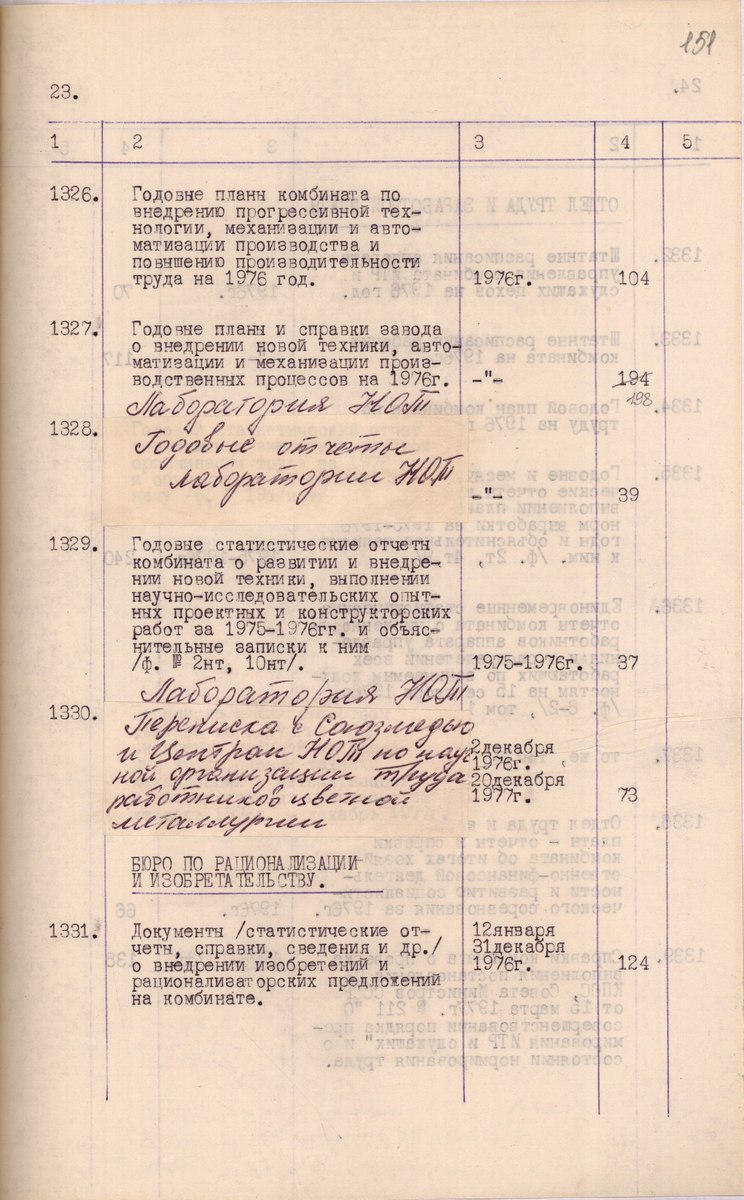 151
23.
1 2 3 4 5
1326. Годовые планы комбината по
внедрению прогрессивной тех-
нологии, механизации и авто-
матизации производства и
повышению производительности
труда на 1976 год. 1976г. 104
1327. Годовые планы и справки завода
о внедрении новой техники, авто-
матизации и механизации произ-
водственных процессов на 1976г. -"- 194
198
Лаборатория НОТ
1328. Годовые отчеты
лаборатории НОТ
-"- 39
1329. Годовые статистические отчеты
комбината о развитии и внедре-
нии новой техники, выполнении
научно-исследовательских опыт-
ных проектных и конструкторских
работ за 1975-1976гг. и объяс-
нительные записки к ним
/ф. № 2нт, 10нт/. 1975-1976г. 37
Лаборатория НОТ
1330. Переписка с Союзмедью
и Центром НОТ по науч- 2декабря
1976г.
ной организации труда 20декабря
работников цветной 1977г. 73
металлургии
БЮРО ПО РАЦИОНАЛИЗАЦИИ
И ИЗОБРЕТАТЕЛЬСТВУ.
1331. Документы /статистические от- 12января
четы, справки, сведения и др./ 31декабря
о внедрении изобретений и 1976г. 124
рационализаторских предложений
на комбинате.